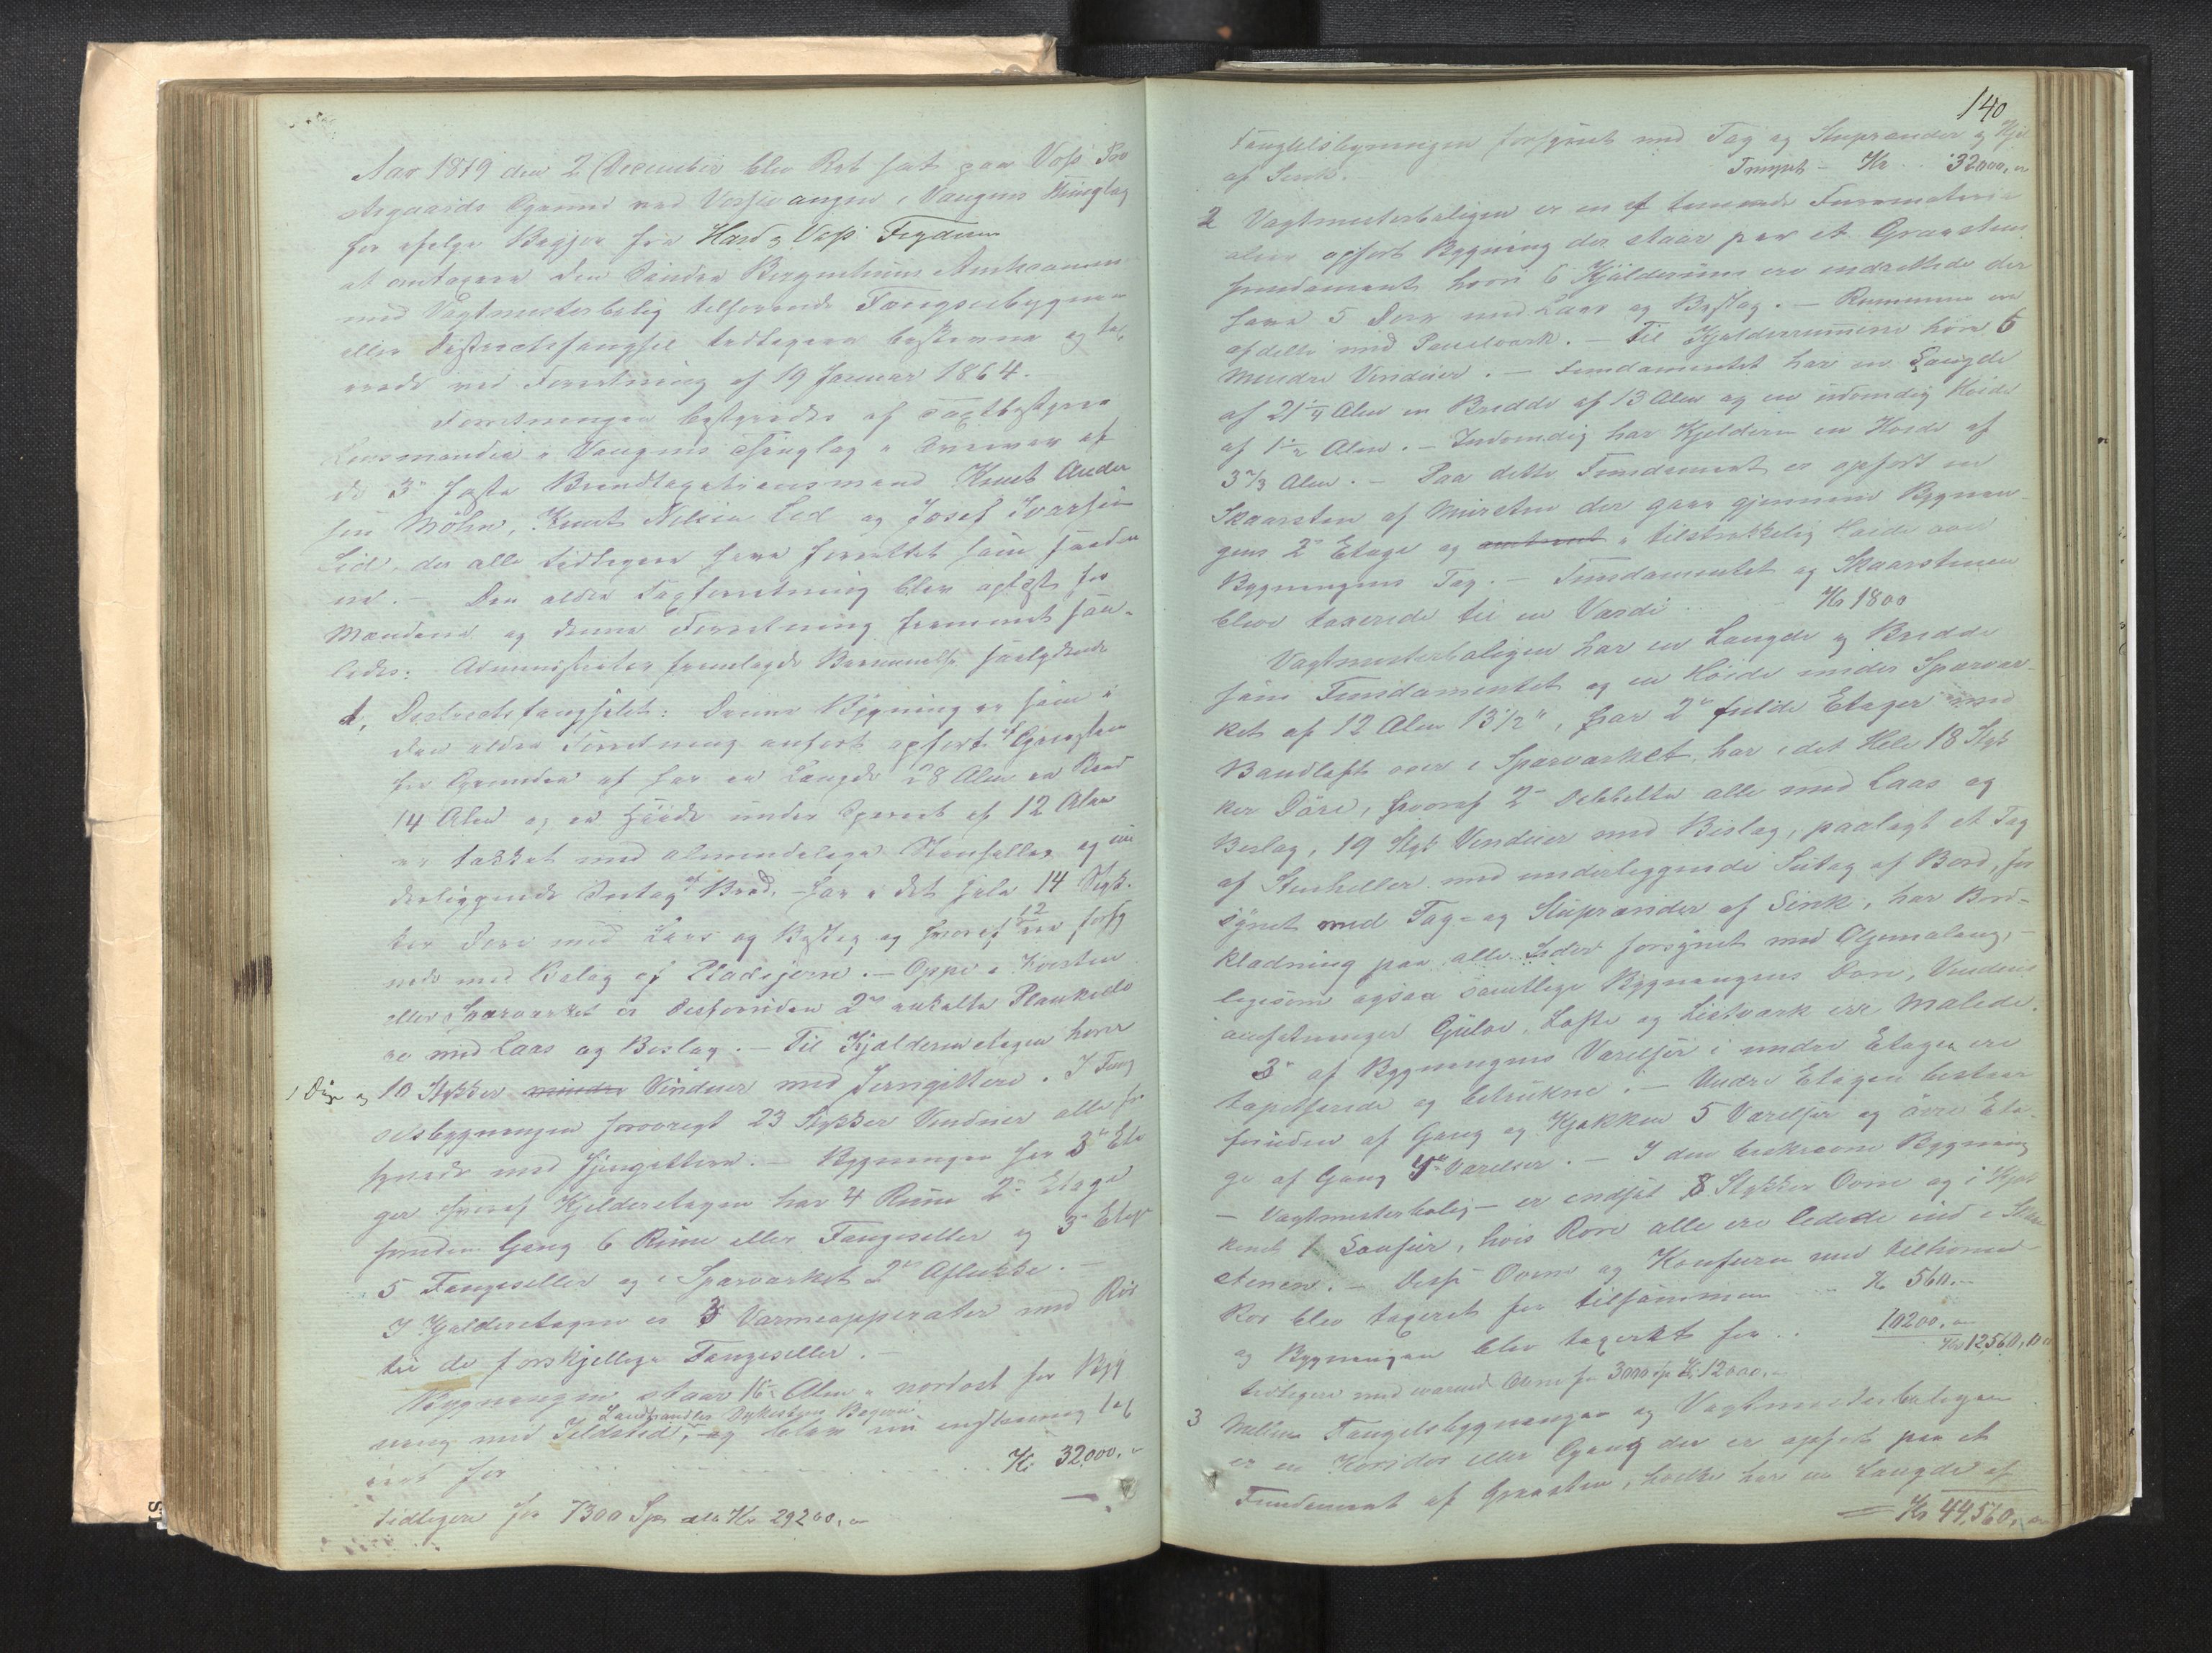 Aar 1879 den 2 December blev Ret sat paa Voss Pre
stegaards Grund ved Vossevangen i Vangens Thinglag
for efter Begjær fra Hard. og Voss Fogderi
at omtaxere den Søndre Bergenhuus Amtscommune
med Vagtmesterbolig tilhørende Fængselsbygning
eller Districtsfængsel tidligere beskrevne og tax
erede ved Forretning af 19 Januar 1864.
Forretningen bestyredes af Taxtbestyrer
Lensmanden i Vangens Thinglag i Overvær af
de 3de faste Brandtaxationsmænd Knut Ander
sen Møhn, Knut Nilsen Lid og Josef Ivarsen
Lid, der alle tidligere have forrettet som saadan
ne. – Den ældre Taxforretning blev oplæst for
Mændene og denne Forretning fremmet saa-
ledes: Administrator fremlagde saalydende
1, Districtsfængslet: Denne Bygning er som i
den ældre Forretning anført opført af Graasten
fra Grunden af har en Længde 28 Alen en Bred
14 Alen og en Høide under Sparret af 12 Alen
er takket med almindelige Stenheller og un
derliggende Sutag af Bord. – har i det hele 14 Styk-
ker Døre med Laas og Beslag og hvoraf 12 ere forsy
nede med Beslag af Pladejern. – Oppe i Kvisten
eller Sparværket er desforuden 2de enkelte Plankedø
re med Laas og Beslag. – Til Kjælderetagen hører
1 Dør og 10 Stykker mindre Vinduer med Jerngittere. I Fæng
selsbygningen forøvrigt 23 Stykker Vinduer alle for
synede med Jerngittere. – Bygningen har 3de Eta
ger hvoraf Kjelderetagen har 4 Rum 2den Etage
foruden Gang 6 Rum eller Fangeceller og 3de Etage
5 Fangeceller og i Sparværket 2de Aflukke. –
I Kjælderetagen er 3 Varmeapperater med Rør
til de forskjellige Fangeceller. –
Bygningen staar 16 Alen i nordost for Byg
Landhandler Dykestens Bageri
ning med Ildsted, og blev nu enstemmig tax
eret for Kr 32,000,00
tidligere for 7300 Sp. eller Kr 29200,00
140
Fængselsbygningen forsynet med Tag og Stuprender og Hjel
af Sink. Transport – Kr 32000,00
2 Vagtmesterboligen er en af tømrede Furumateri
aler opført Bygning der staar paa et Graastens
fundament hvori 6 Kjælderrum ere indrettede der
have 5 Døre med Laas og Beslag. – Rummene ere
afdelte med Panelværk. – Til Kjelderrummene høre 6
mindre Vinduer. – Fundamentet har en Længde
af 21 1/4 Alen en Bredde af 13 Alen og en udvendig Høide
af 1 1/2 Alen. – Indvendig har Kjelderen en Høide af
3 2/3 Alen. – Paa dette Fundament er opført en
Skaarsten af Mursten der gaar gjennem Bygnin
gens 2de Etage og i tilstrækkelig Høide over
Bygningens Tag. – Fundamentet og Skaarstenen
blev taxerede til en Værdi Kr 1800
Vagtmesterboligen har en Længde og Bredde
som Fundamentet og en Høide under Sparvær-
ket af 12 Alen 13 1/2", har 2de fulde Etager med
Bandloft over i Sparværket, har i det Hele 18 Styk
ker Døre, hvoraf 2de dobbelte alle med Laas og
Beslag, 19 Styk Vinduer med Beslag, paalagt et Tag
af Stenheller med underliggende Sutag af Bord, for
synet med Tag- og Stuprender af Sink, har Bord-
klædning paa alle Sider forsynet med Oljemaling, –
ligesom ogsaa samtlige Bygningens Døre, Vinduer
indfatninger Gulve, Lofte og Listværk ere malede.
3de af Bygningens Værelser i nedre Etagen ere
tapetserede og betrukne. – Nedre Etagen bestaar
foruden af Gang og Kjøkken 5 Værelser og øvre Eta-
ge af Gang 4 Værelser. – I den beskrevne Bygning
– Vagtmesterbolig – er indsat 8 Stykker Ovne og i Kjøk
kenet 1 Komfur, hvis Rør alle ere ledede ind i Skaar
stenen. – Disse Ovne og Komfuren med tilhørende
Rør blev taxeret for tilsammen Kr 560.–
og Bygningen blev taxeret for .. 10200,00
Kr 12,560,00
tidligere med iværende Ovne for 3000 Sp Kr 12000,–
3 Mellem Fængselsbygningen og Vagtmesterboligen
er en Koridor eller Gang der er opført paa et
Fundament af Graasten, hvilke har en Længde af
Kr 44,560,00